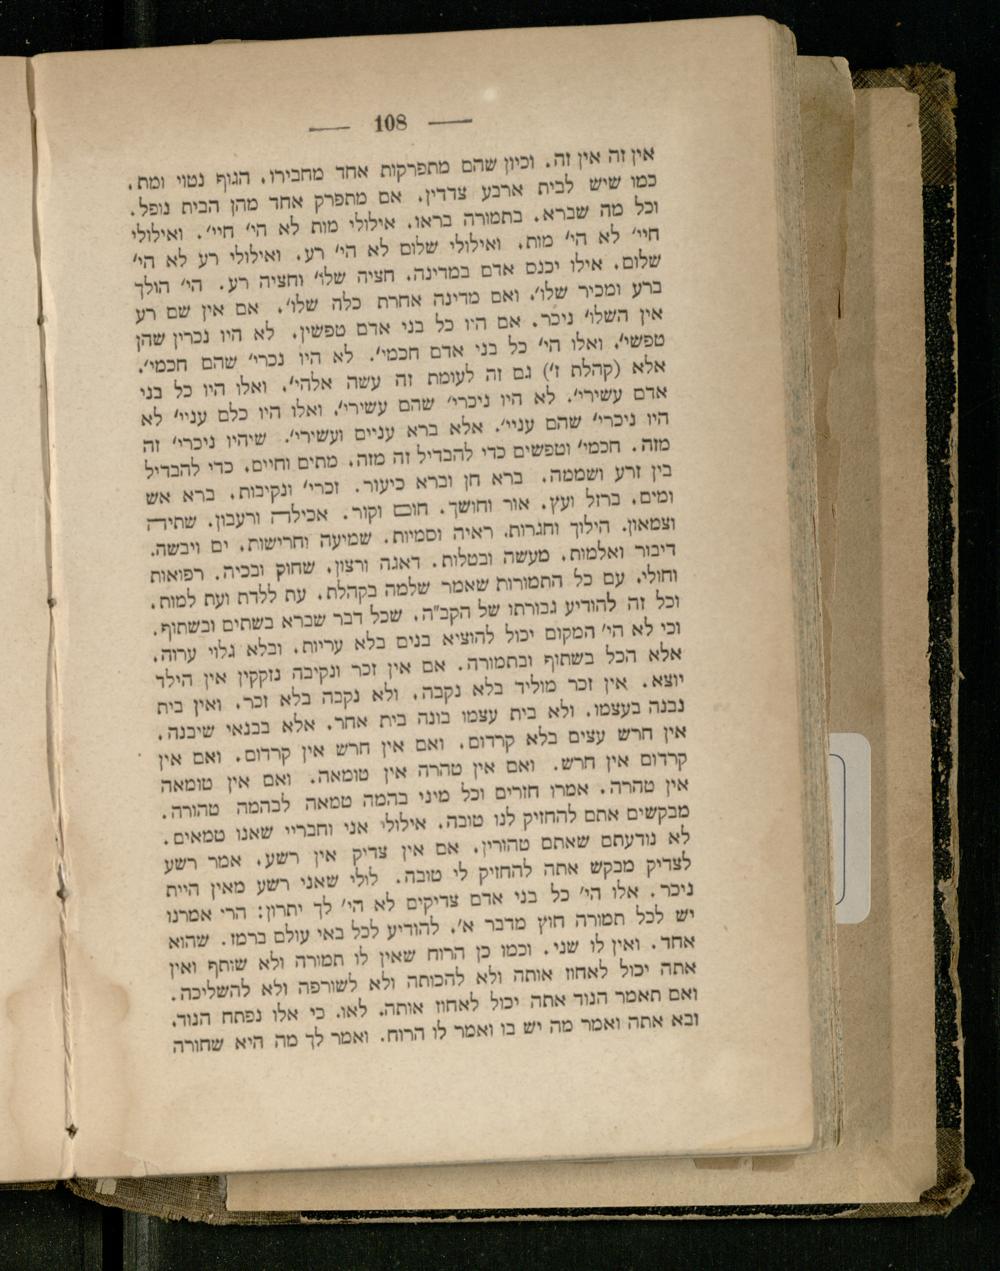 — 108 —
אין זה אין זה. וכיון שהם מתפרקות אחד מחבירו. הגוף נטוי ומת.
כמו שיש לבית ארבע צדדין. אם מתפרק אחד מהן הבית נופל.
וכל מה שברא. בתמורה בראו. אילולי מות לא הי' חיי'. ואילולי
חיי' לא הי' מות. ואילולי שלום לא הי' רע. ואילולי רע לא הי'
שלום. אילו יכנס אדם במדינה. חציה שלו' וחציה רע. הי' הולך
ברע ומכיר שלו'. ואם מדינה אחרת כלה שלו'. אם אין שם רע
אין השלו' ניכר. אם היו כל בני אדם טפשין. לא היו נכרין שהן
טפשי'. ואלו הי' כל בני אדם חכמי'. לא היו נכרי' שהם חכמי'.
אלא (קהלת ז') גם זה לעומת זה עשה אלהי'. ואלו היו כל בני
אדם עשירי'. לא היו ניכרי' שהם עשירי'. ואלו היו כלם עניי' לא
היו ניכרי' שהם עניי'. אלא ברא עניים ועשירי'. שיהיו ניכרי' זה
מזה. חכמי' וטפשים כדי להבדיל זה מזה. מתים וחיים. כדי להבדיל
בין זרע ושממה. ברא חן וברא כיעור. זכרי' ונקיבות. ברא אש
ומים. ברזל ועץ. אור וחושך. חום וקור. אכילה ורעבון. שתיה
וצמאון. הילוך וחגרות. ראיה וסמיות. שמיעה וחרישות. ים ויבשה.
דיבור ואלמות. מעשה ובטלות. דאגה ורצון. שחוק ובכיה. רפואות
וחולי. עם כל התמורות שאמר שלמה בקהלת. עת ללדת ועת למות.
וכל זה להודיע גבורתו של הקב"ה. שכל דבר שברא בשתים ובשתוף.
וכי לא הי' המקום יכול להוציא בנים בלא עריות. ובלא גלוי ערוה.
אלא הכל בשתוף ובתמורה. אם אין זכר ונקיבה נזקקין אין הילד
יוצא. אין זכר מוליד בלא נקבה. ולא נקבה בלא זכר. ואין בית
נבנה בעצמו. ולא בית עצמו בונה בית אחר. אלא בבנאי שיבנה.
אין חרש עצים בלא קרדום. ואם אין חרש אין קרדום. ואם אין
קרדום אין חרש. ואם אין טהרה אין טומאה. ואם אין טומאה
אין טהרה. אמרו חזרים וכל מיני בהמה טמאה לבהמה טהורה.
מבקשים אתם להחזיק לנו טובה. אילולי אני וחבריי שאנו טמאים.
לא נודעתם שאתם טהורין. אם אין צדיק אין רשע. אמר רשע
לצדיק מבקש אתה להחזיק לי טובה. לולי שאני רשע מאין היית
ניכר. אלו הי' כל בני אדם צדיקים לא הי' לך יתרון: הרי אמרנו
יש לכל תמורה חוץ מדבר א'. להודיע לכל באי עולם ברמז. שהוא
אחד. ואין לו שני. וכמו כן הרוח שאין לו תמורה ולא שותף ואין
אתה יכול לאחוז אותה ולא להכותה ולא לשורפה ולא להשליכה.
ואם תאמר הנוד אתה יכול לאחוז אותה. לאו. כי אלו נפתח הנוד.
ובא אתה ואמר מה יש בו ואמר לו הרוח. ואמר לך מה היא שחורה